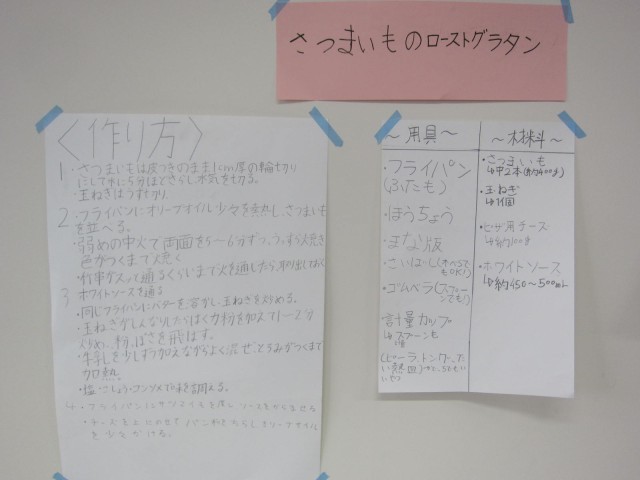 さつまいものローストグラタン
〈作り方〉
1. さつまいもは皮つきのまま1cm厚の輪切り
にして水に5分ほどさらし、水気を切る。
玉ねぎはうす切り。
2. フライパンにオリーブオイル少々を熱し、さつまいも
を並べる。
・弱めの中火で両面を5~6分ずつ、うっすら焼き
色がつくまで焼く
・竹串がスッと通るくらいまで火を通したら、取り出しておく
3. ホワイトソースを
・同じフライパンにバターを溶かし玉ねぎを炒める。
・玉ねぎがしんなりしたらはく力粉を加えて1~2分
炒め、粉っぽさを飛ばす。
・牛乳を少しずつ加えながらよく混ぜ、とろみがつくまで
加熱
・塩・こしょう・コンソメで味を調える。
4. フライパンにサツマイモを戻し ソースをからませる
・チーズを上にのせて パン粉をちらし オリーブオイル
を少々かける。
~用具~
・フライパン
(ふたも)
・ほうちょう
・まな版
・さいばし(
でもOK!)
・ゴムベラ(スプーン
でも)
・計量カップ
↳スプーンも
(ピーラー、トング、
~材料~
・さつまいも
↳中2本(約400g)
・玉ねぎ
↳1個
・ピザ用チーズ
↳約100g
・ホワイトソース
↳約450~500mL